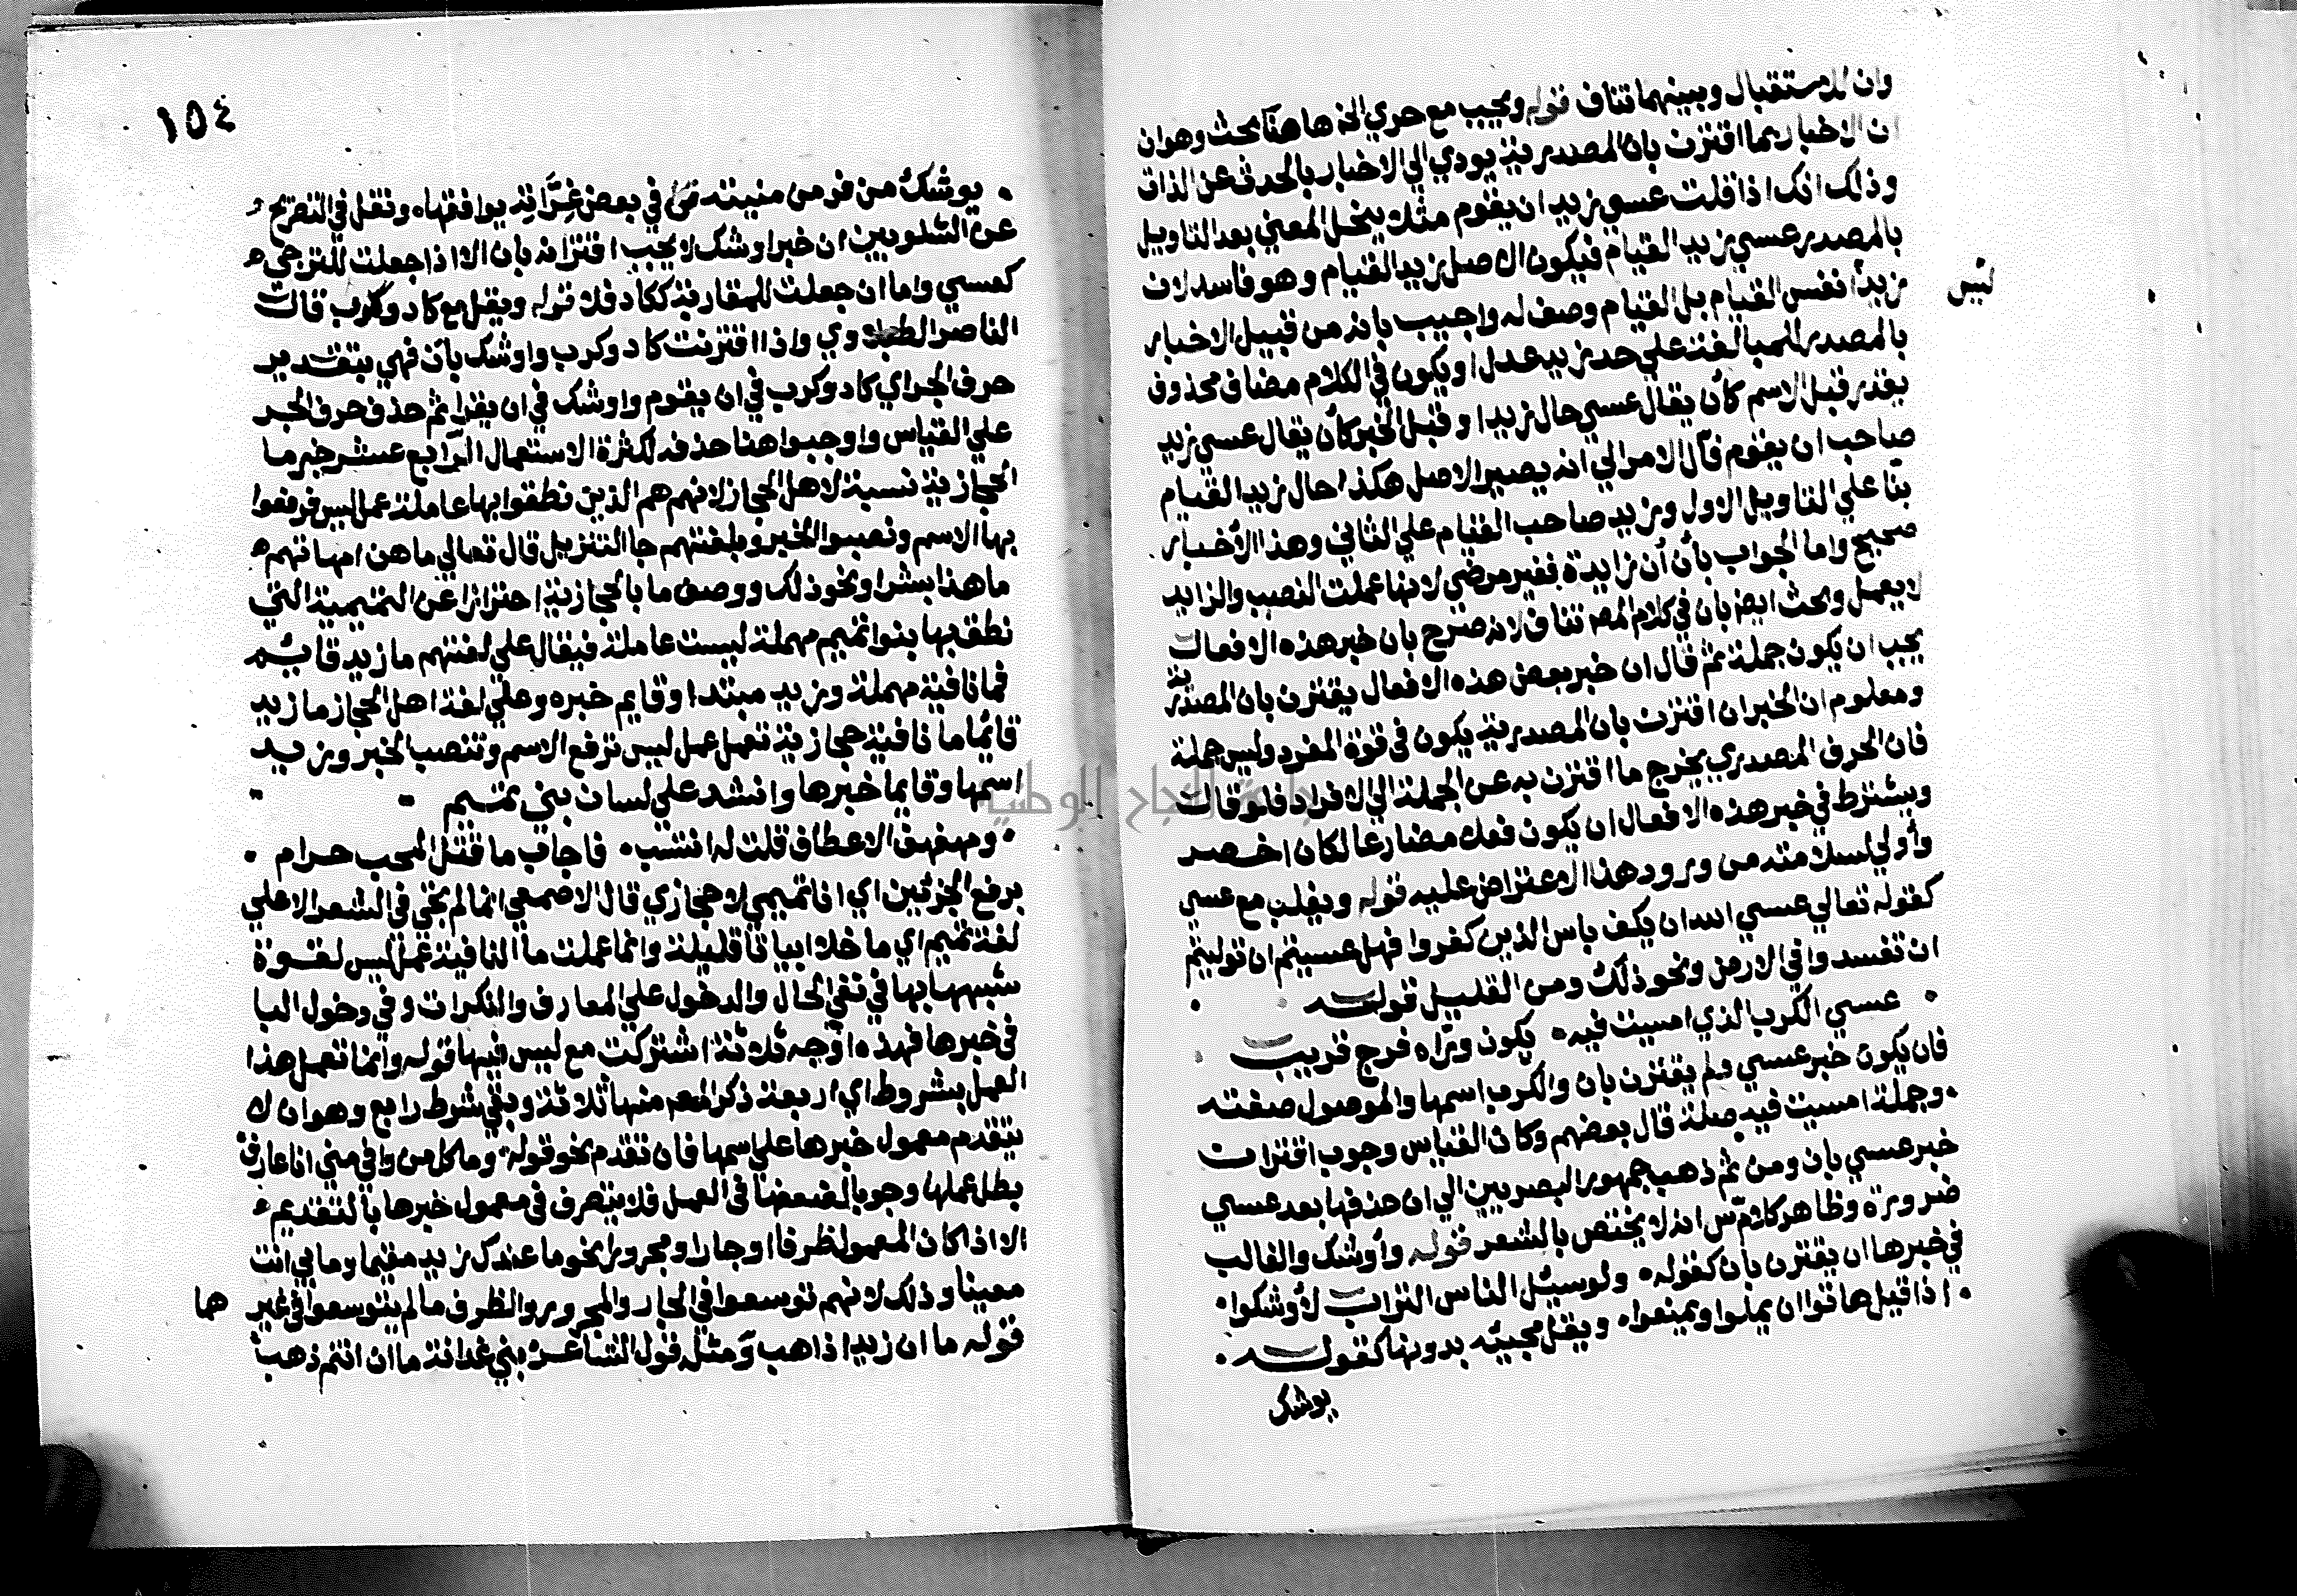 وان للاستقبال وبينهما تناف قوله ويجب مع حري الخ هاهنا بحث وهو ان
ان الاخبار بما اقترن بان المصدرية يودي الي الاخبار بالحدث عن الذات
وذلك انك اذا قلت عسي زيد ان يقوم مثلا ينحل المعني بعد التاويل
بالمصدر عسي زيد القيام فيكون الاصل زيد القيام وهو فاسد لان
ليس
زيدا نفس القيام بل القيام وصف له واجيب بانه من قبيل الاخبار
بالمصدر للمبالغة علي حد زيد عدل او يكون في الكلام مضاف محذوف
يقدر قبل الاسم كأن يقال عسي حال زيد او قبل الخبر كأن يقال عسي زيد
صاحب ان يقوم فآل الامر الي انه يصير الاصل هكذا حال زيد القيام
بنا علي التاويل الاول وزيد صاحب القيام علي الثاني وهذا الأخبار
صحيح واما الجواب بأن أن زايدة فغير مرضي لانها عملت النصب والزايد
لا يعمل وبحث ايضا بان في كلام المص تناف لانه صرح بان خبر هذه الافعال
يجب ان يكون جملة ثم قال ان خبر بعض هذه الافعال يقترن بان المصدرية
ومعلوم ان الخبر ان اقترن بان المصدرية يكون في قوة المفرد وليس جملة
فان الحرف المصدري يخرج ما اقترن به عن الجملة الي الافراد فلو قال
ويشترط في خبر هذه الافعال ان يكون فعلا مضارعا لكان اخصر
وأولي لسلامته من ورود هذا الاعتراض عليه قوله ويغلب مع عسي
كقوله تعالي عسي الله ان يكف باس الذين كفروا فهل عسيتم ان توليتم
ان تفسدوا في الارض ونحو ذلك ومن القليل قوله
عسي الكرب الذي امسيت فيه • يكون وراه فرج قريب
فان يكون خبر عسي ولم يقترن بان والكرب اسمها والموصول صفته
وجملة امسيت فيه صلة قال بعضهم وكان القياس وجوب اقتران
خبر عسي بان ومن ثم ذهب جمهور البصريين الي ان حذفها بعد عسي
ضرورة وظاهر كلام س انه لا يختص بالشعر قوله وأوشك والغالب
في خبرها ان يقترن بأن كقوله • ولو سيل الناس التراب لأوشكوا •
• اذا قيل هاتوا ان يملوا ويمنعوا • ويقل مجيئه بدونها كقوله •
يوشك
١٥٤
• يوشك من فر من منيته • في بعض غراته يوافقها ه ونقل في التصريح
عن الشلوبين ان خبر اوشك لا يجب اقترانه بان الا اذا جعلت للترجي ه
كعسي واما ان جعلت للمقاربة ككاد فلا قوله ويقل مع كاد وكرب قال
الناصر الطبلاوي واذا اقترنت كاد وكرب واوشك بأن فهي بتقدير
حرف الجر اي كاد وكرب في ان يقوم واوشك في ان يقرا ثم حذف حرف الجر
علي القياس واوجبوا هنا حذفه لكثرة الاستعمال الرابع عشر خبر ما
الحجازية نسبة لاهل الحجاز لانهم هم الذين نطقوا بها عاملة عمل ليس فرفعوا
بها الاسم ونصبوا الخبر وبلغتهم جا التنزيل قال تعالي ما هن امهاتهم ه
ما هذا بشرا ونحو ذلك ووصف ما بالحجازية احترازا عن التميمية التي
نطق بها بنوا تميم مهملة ليست عاملة فيقال علي لغتهم ما زيد قائم
فما نافية مهملة وزيد مبتدا وقايم خبره وعلي لغة اهل الحجاز ما زيد
قائما ما نافية حجازية تعمل عمل ليس ترفع الاسم وتنصب الخبر وزيد
اسمها وقايما خبرها وانشد علي لسان بني تميم
• ومهفهف الاعطاف قلت له انتسب • فاجاب ما قتل المحب حرام •
برفع الجزئين اي انا تميمي لا حجازي قال الاصمعي انما لم تجي في الشعر الا علي
لغة تميم اي ما خلا ابياتا قليلة وانما عملت ما النافية عمل ليس لقوة
شبهها بها في نفي الحال والدخول علي المعارف والنكرات وفي دخول البا
في خبرها فهذه اوجه ثلاثة اشتركت مع ليس فيها قوله وانما تعمل هذا
العمل بشروط اي اربعة ذكر المص منها ثلاثة وبقي شرط رابع وهو ان لا
يتقدم معمول خبرها علي اسمها فان تقدم نحو قوله • وما كل من وافي مني انا عارف
بطل عملها وجوبا لضعفها في العمل فلا يتصرف في معمول خبرها بالتقديم •
الا اذا كان المعمول ظرفا او جارا ومجرورا نحو ما عندك زيد مقيما وما في انت
معينا وذلك لانهم توسعوا في الجار والمجرور والظرف ما لم يتوسعوا في غيرها
قوله ما ان زيد ذاهب ومثله قول الشاعر بني غدانة ما ان انتم ذهب